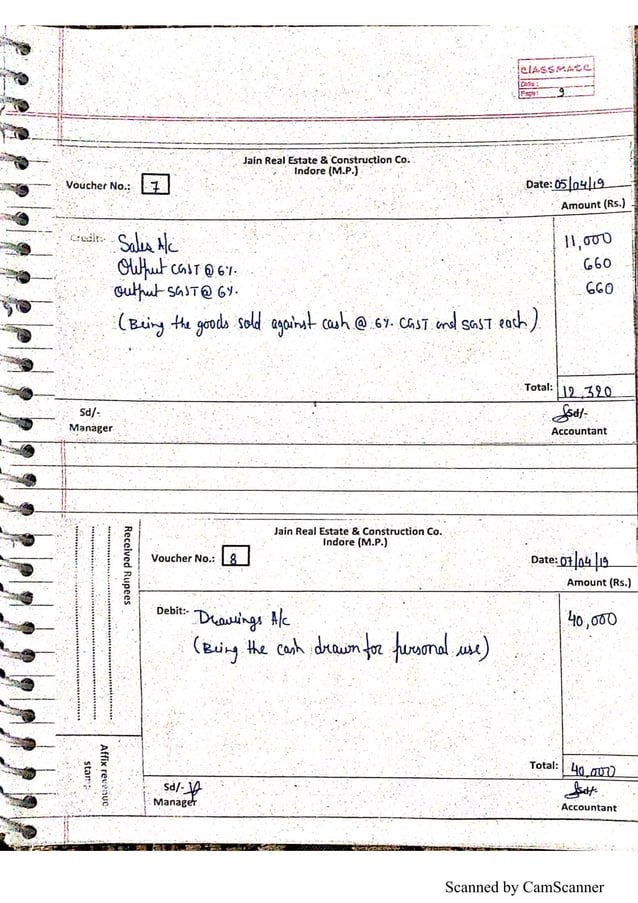 classmate
Date:
Page: 9
Jain Real Estate & Construction Co.
Indore (M.P.)
Voucher No.: 7 Date: 05/04/19
Amount (Rs.)
Credit:- Sales A/c 11,000
Output CGST @ 6%. 660
Output SGST @ 6%. 660
(Being the goods sold against cash @ 6%. CGST and SGST each)
Total: 12,320
Sd/- Sd/-
Manager Accountant
Jain Real Estate & Construction Co.
Indore (M.P.)
Voucher No.: 8 Date: 07/04/19
Amount (Rs.)
Received Rupees
Debit:- Drawings A/c 40,000
(Being the cash drawn for personal use)
Affix revenue
stamp
Total: 40,000
Sd/- Sd/-
Manager Accountant
Scanned by CamScanner